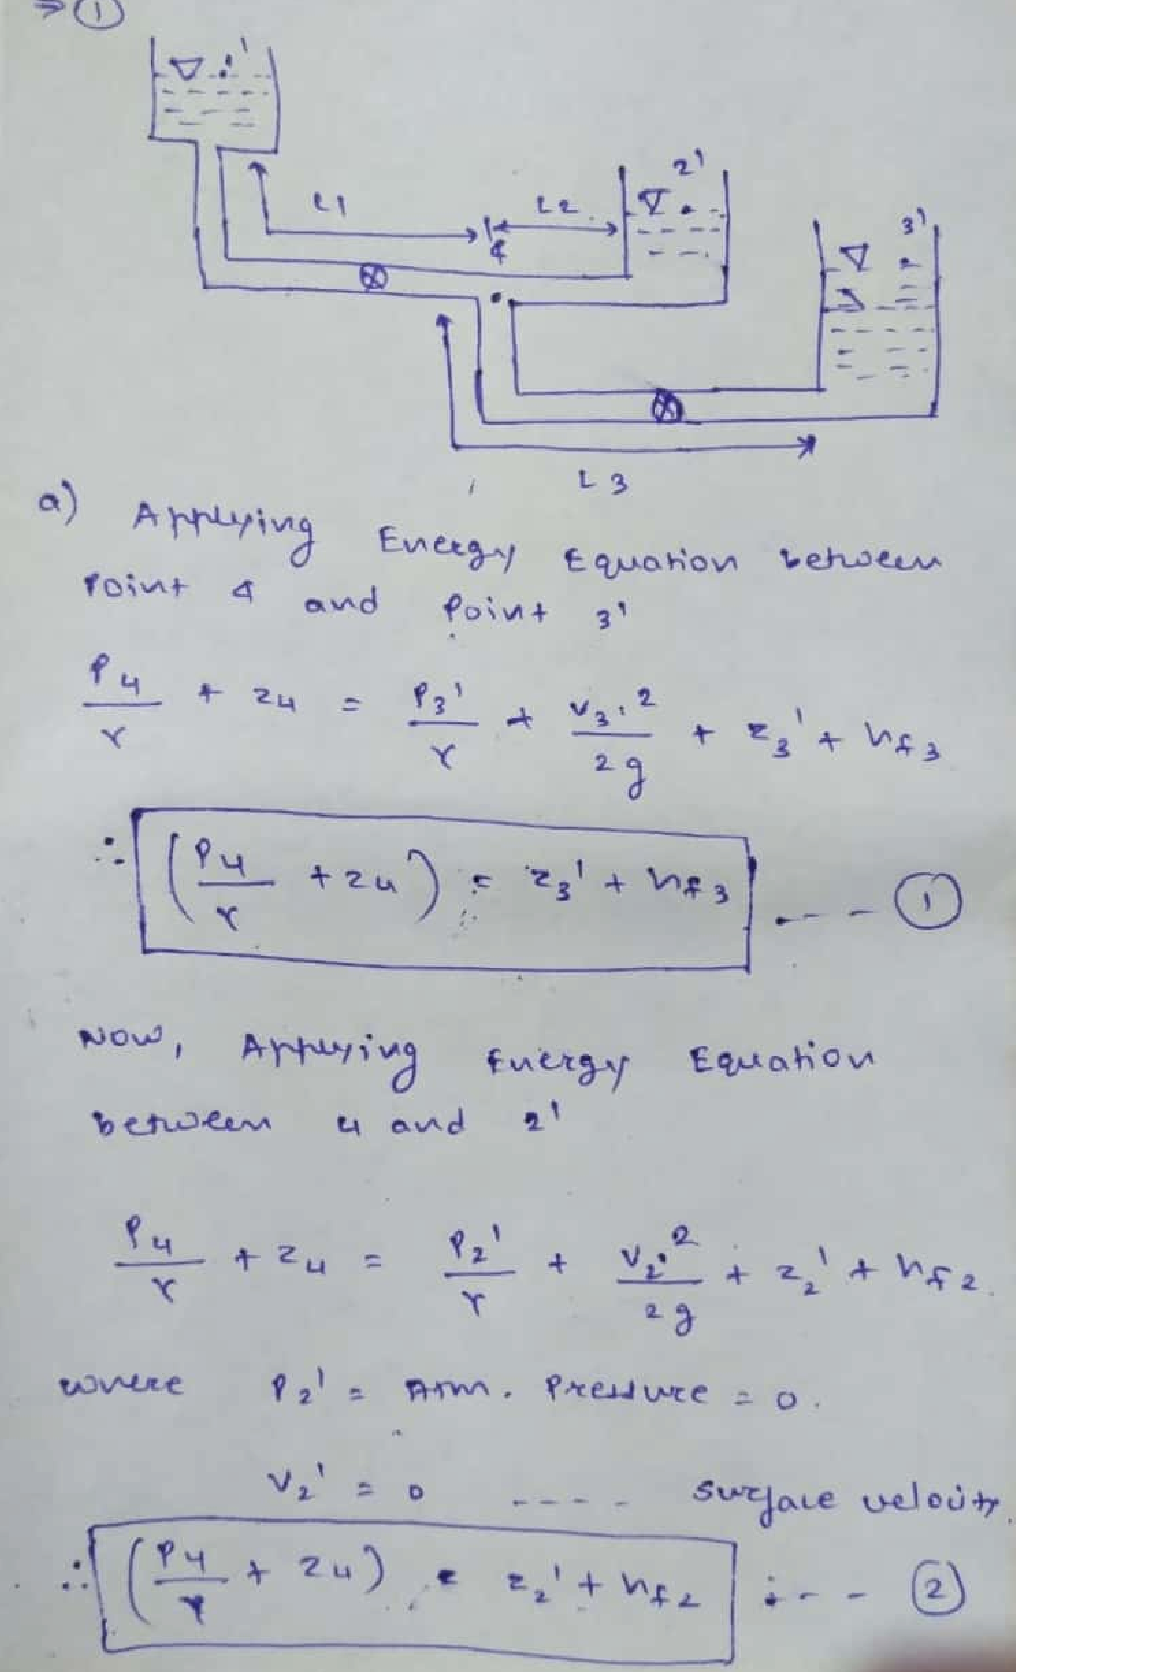 ⇒ ①
1'
2'
3'
L1
L2
4
L3
a) Applying Energy Equation between
Point 4 and Point 3'
P4/γ + z4 = P3'/γ + V3'²/2g + z3' + hf3
∴ (P4/γ + z4) = z3' + hf3 ---- ①
Now, Applying Energy Equation
between 4 and 2'
P4/γ + z4 = P2'/γ + V2'²/2g + z2' + hf2.
where P2' = Atm. Pressure = 0.
V2' = 0 ---- surface velocity.
∴ (P4/γ + z4) = z2' + hf2 ---- ②